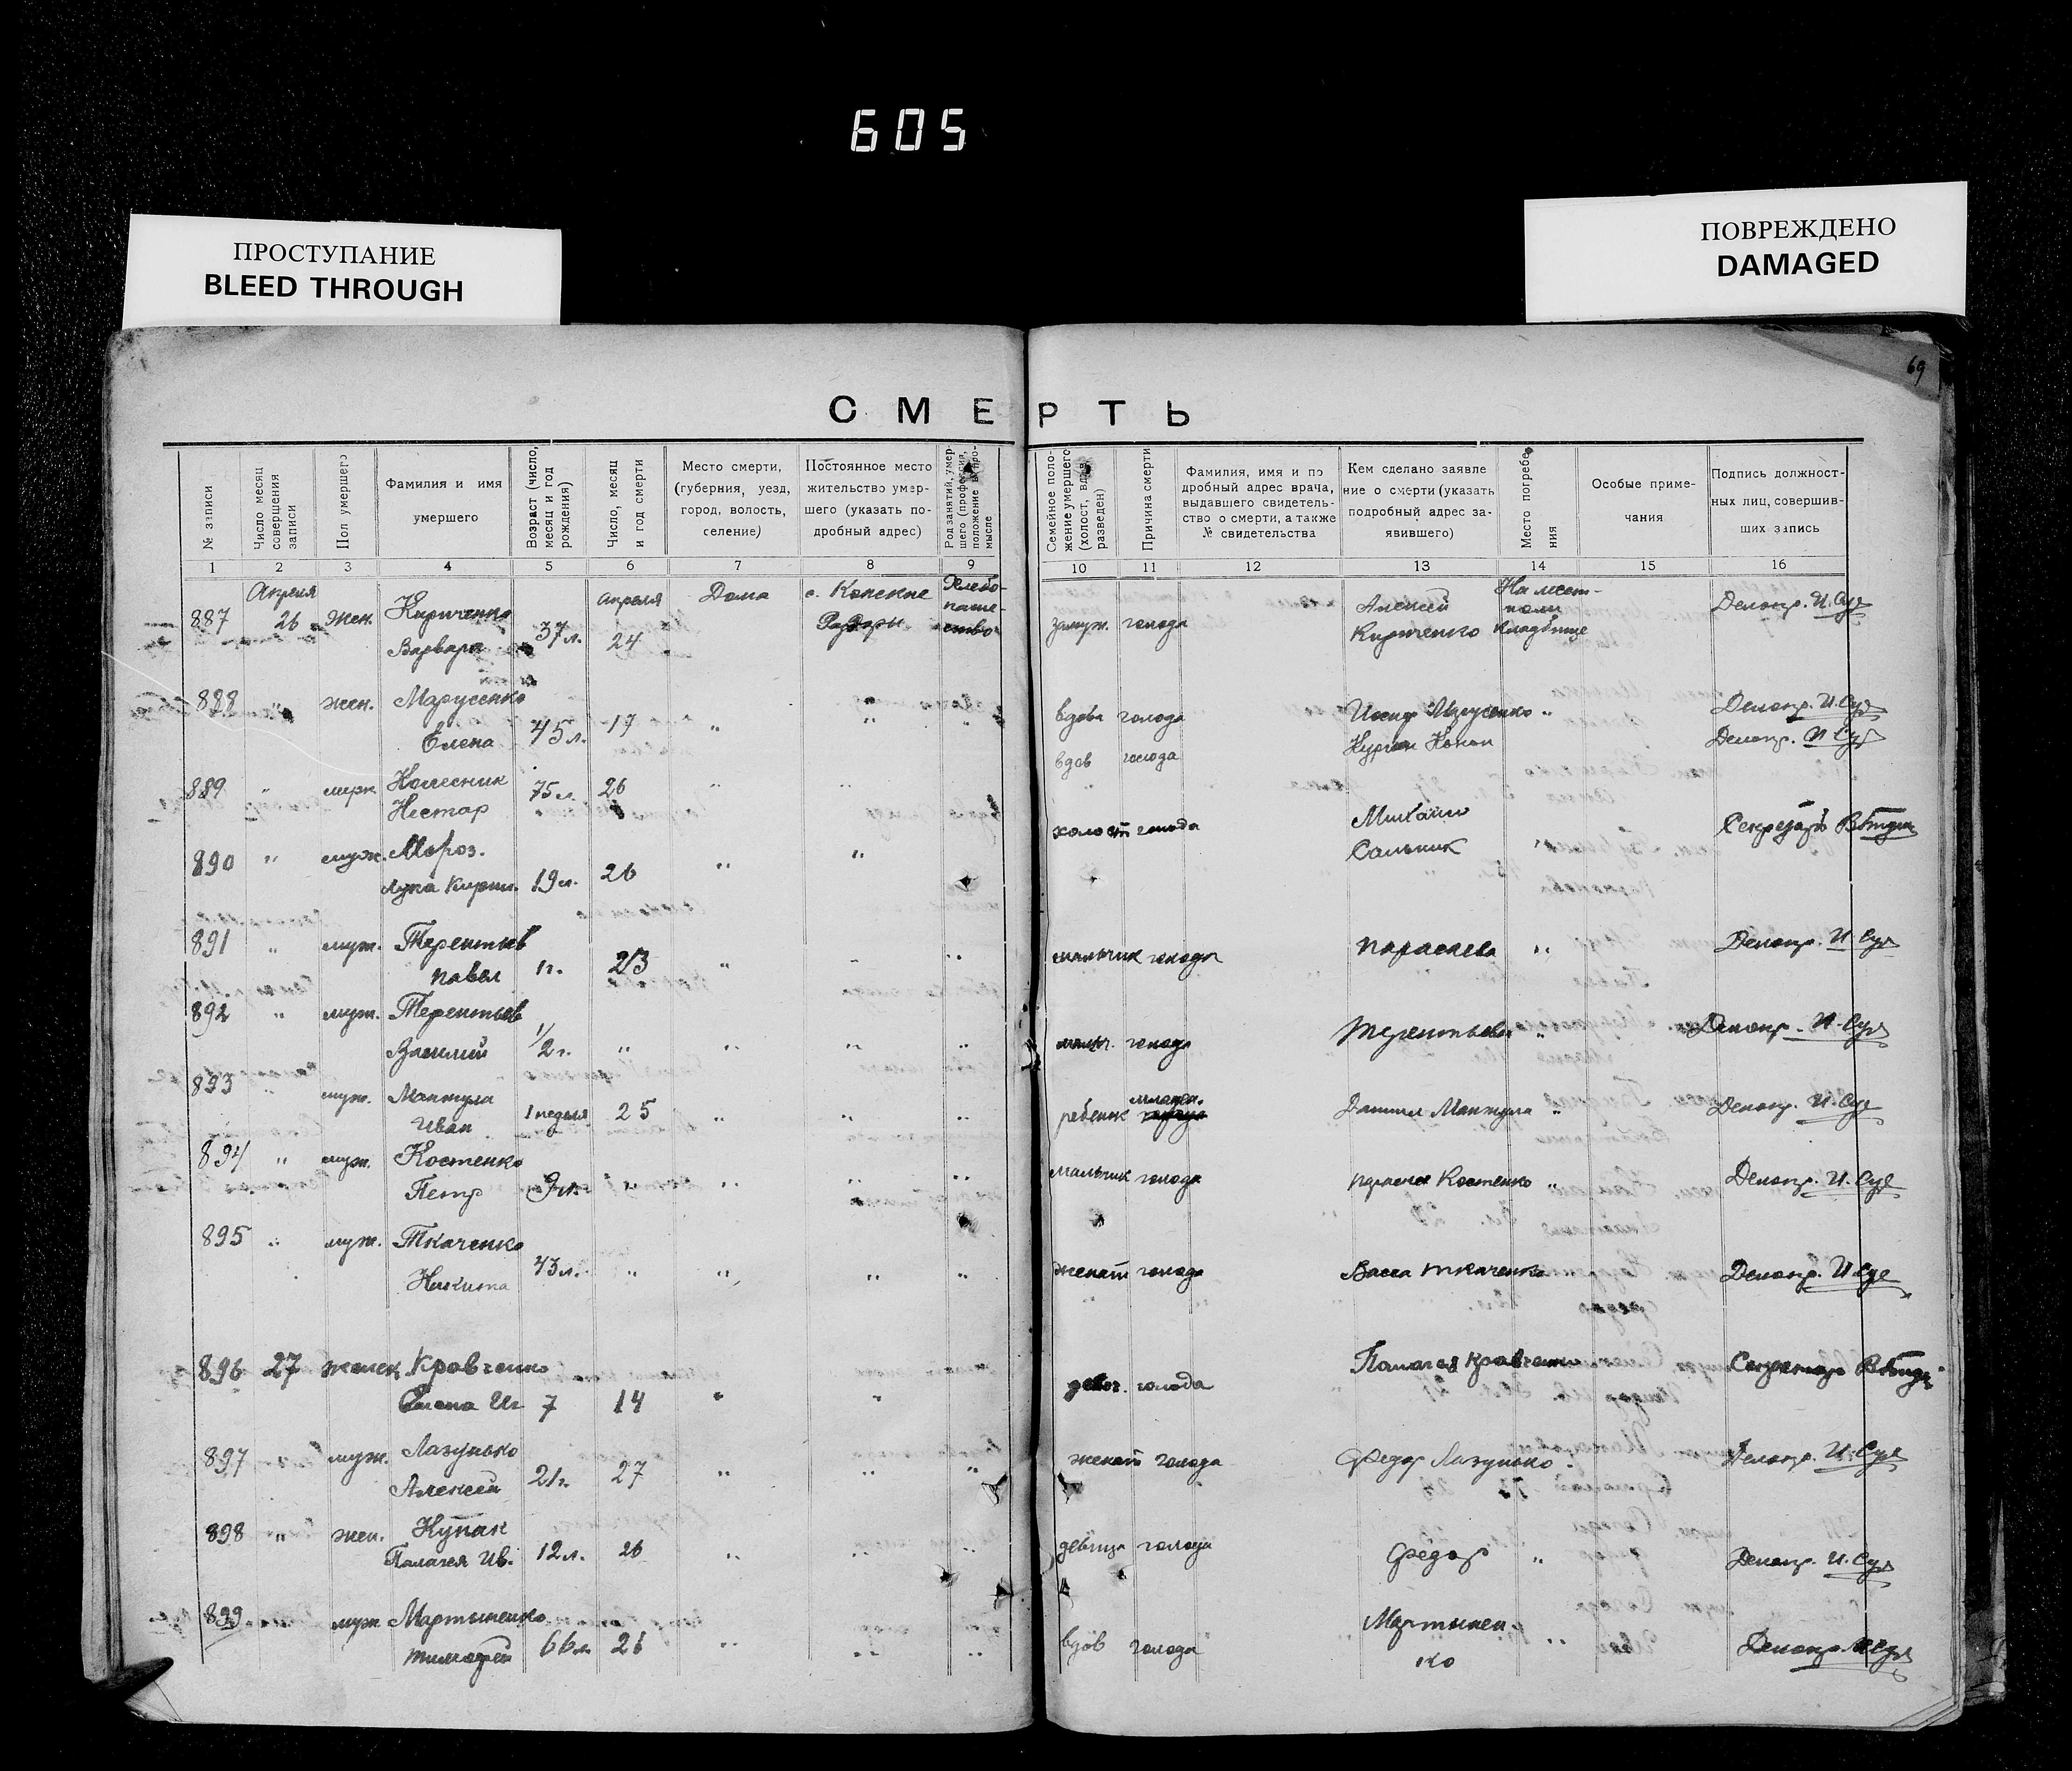 605
ПРОСТУПАНИЕ
BLEED THROUGH
ПОВРЕЖДЕНО
DAMAGED
69
СМЕРТЬ
№ записи
Число месяц совершения записи
Пол умершего
Фамилия и имя умершего
Возраст (число, месяц и год рождения)
Число, месяц и год смерти
Место смерти, (губерния, уезд, город, волость, селение)
Постоянное место жительство умершего (указать подробный адрес)
Род занятий, умершего (профессия, положение в промысле
Семейное положение умершего (холост, вдов, разведен)
Причина смерти
Фамилия, имя и подробный адрес врача, выдавшего свидетельство о смерти, а также № свидетельства
Кем сделано заявление о смерти (указать подробный адрес заявившего)
Место погребения
Особые примечания
Подпись должностных лиц, совершивших запись
1 2 3 4 5 6 7 8 9 10 11 12 13 14 15 16
887 Апреля 26 жен. Кириченко Варвара 37 л. апреля 24 Дома с. Копекне Хлебопашество замуж. голода Алексей Кириченко На мест- кладбище Делопр.
888 " жен. Марусенко Елена 45 л. 17 " " вдова голода Марусенко " Делопр.
889 " Колесник Нестор 75 л. 26 " " вдов голода Делопр.
890 " муж. Мороз Лука 19 л. 26 " " холост голода Михаил Сальник " Секретарь
891 " муж. Терентьев Павел 1 г. 23 " " " мальчик голода Параскева " Делопр.
892 " муж. Терентьев Василий 1/2 г. " " " " мальч. голода Терентьева " Делопр.
893 " муж. Мантула Иван 1 неделя 25 " " " ребенок младен. Даниил Мантула " Делопр.
894 " муж. Костенко Петр " " " " мальчик голода Костенко " Делопр.
895 " муж. Ткаченко Никита 43 л. " " " " женат голода Васса Ткаченко " Делопр.
896 27 Кравченко 7 14 " " девоч. голода Палагея Кравченко Секретарь
897 " муж. Лазунько Алексей 21 г. 27 " " " женат голода Федор Лазунько " Делопр.
898 " жен. Купак Палагея Ив. 12 л. 26 " " " девица голода Федор " Делопр.
899 муж. Мартыненко Тимофей 66 л. 26 " " " вдов голода Мартынен- ко " Делопр.